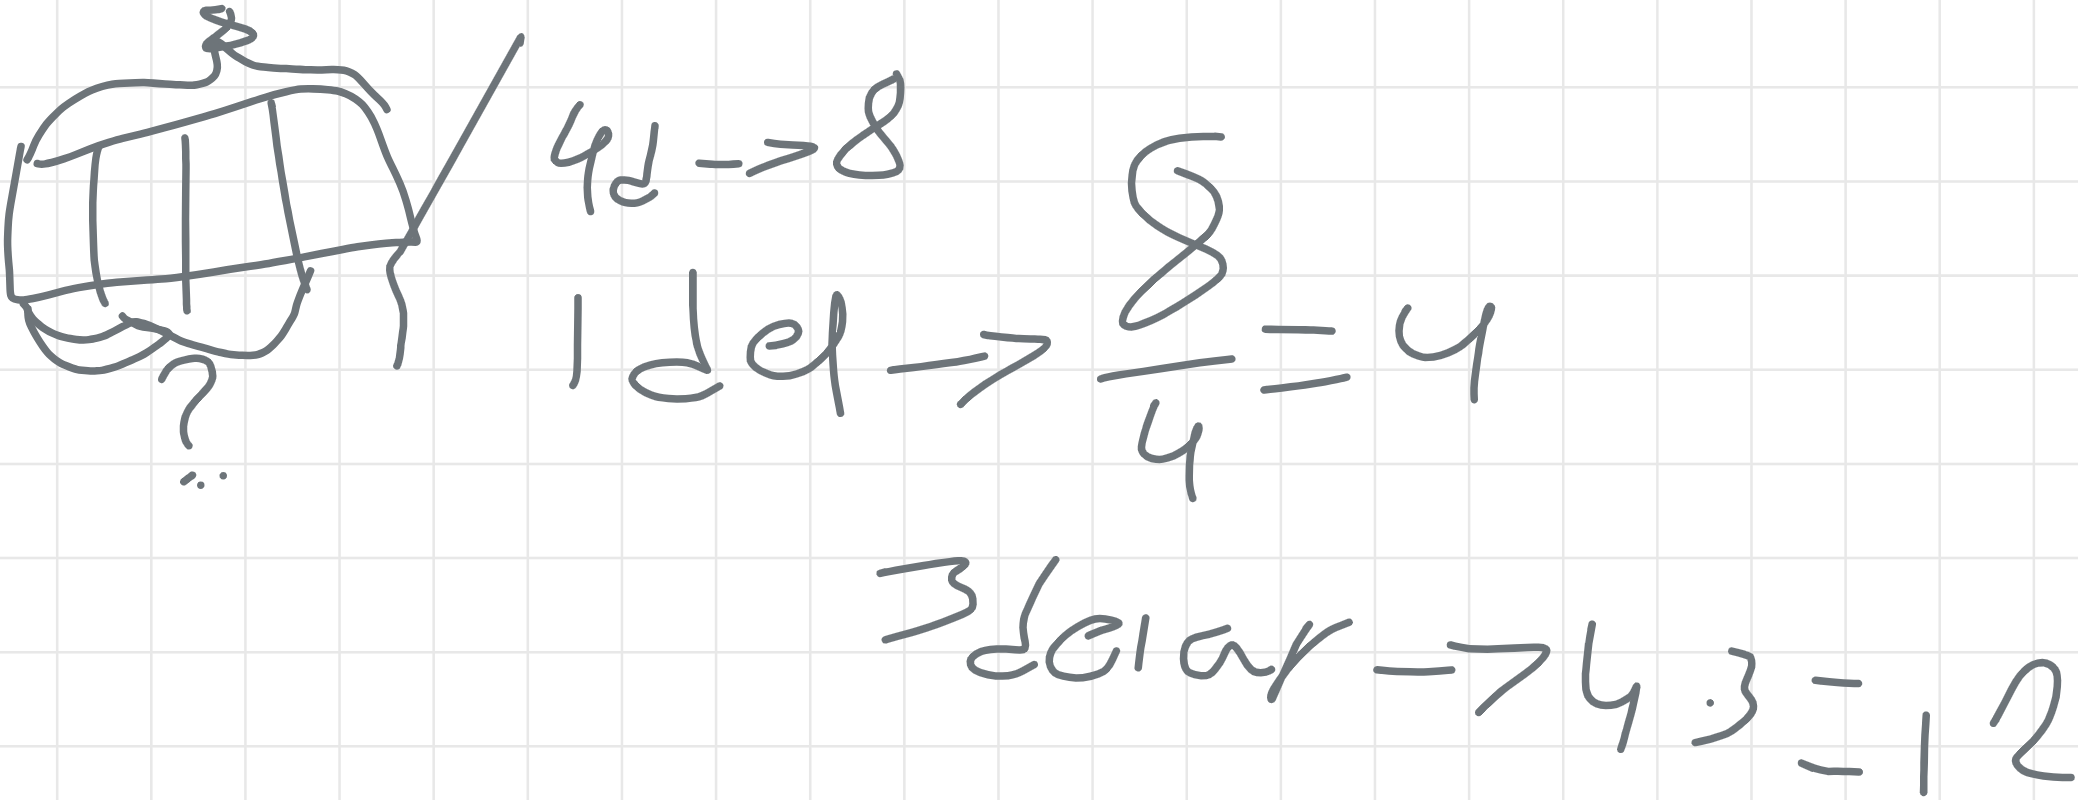 8
4d -> 8
1 del -> 8/4 = 4
?
3 delar -> 4 · 3 = 12